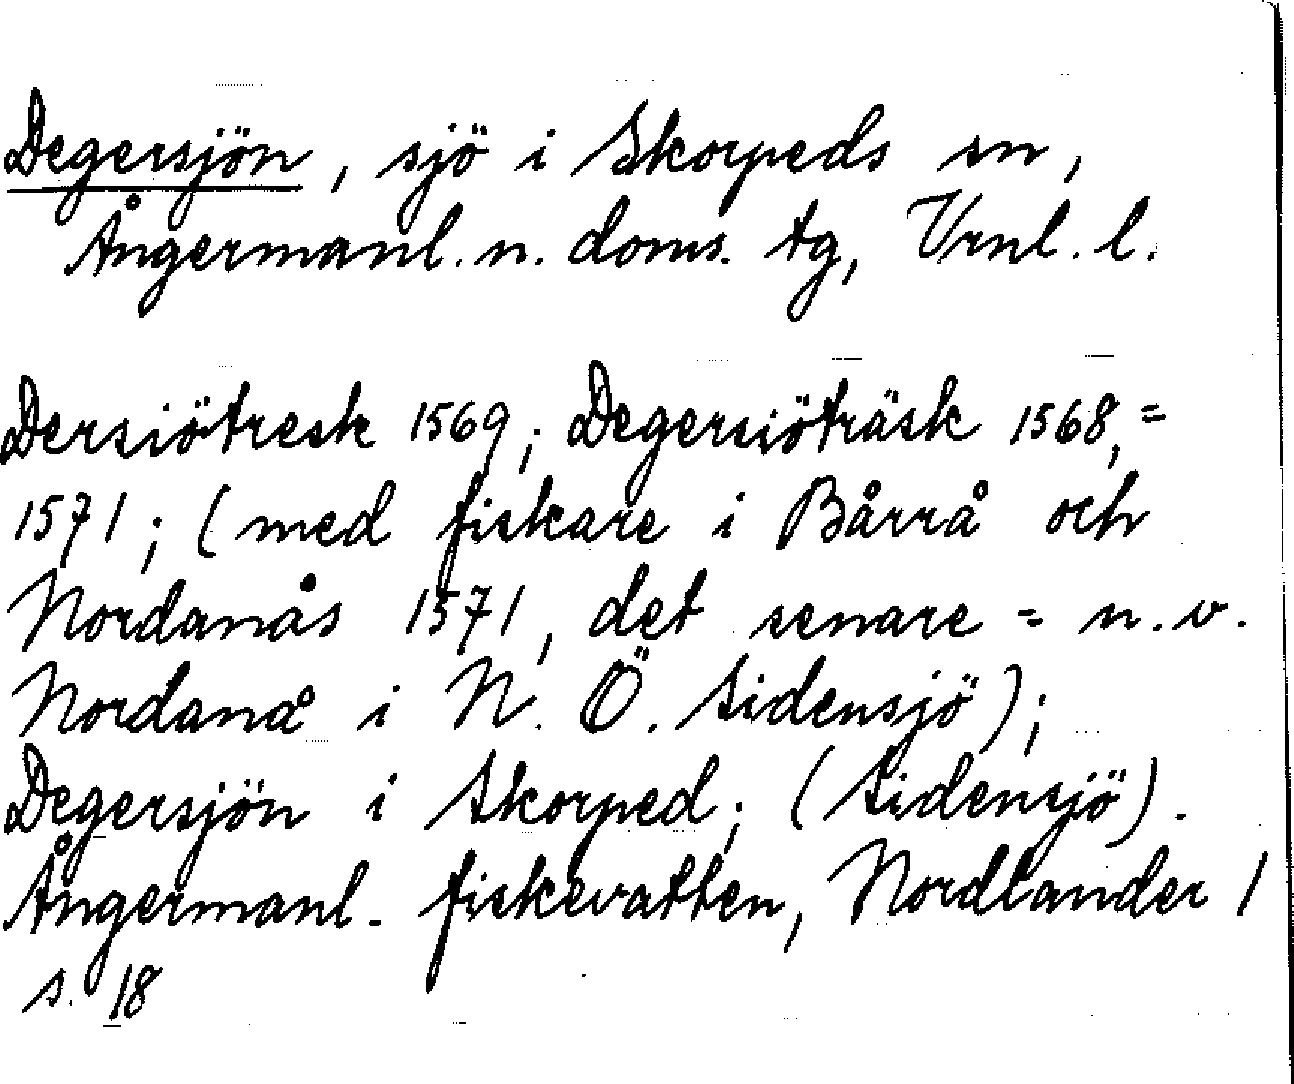 Degersjön, sjö i Skorpeds sn,
Ångermanl. n. doms. tg, Vrnl. l.
Dersiötresk 1569; Degersiöträsk 1568,=
1571; (med fiskare i Bårrå och
Nordanås 1571, det senare = n. v.
Nordanå i N. Ö. Sidensjö);
Degersjön i Skorped; (Sidensjö).
Ångermanl. fiskevatten, Nordlander 1
s. 18